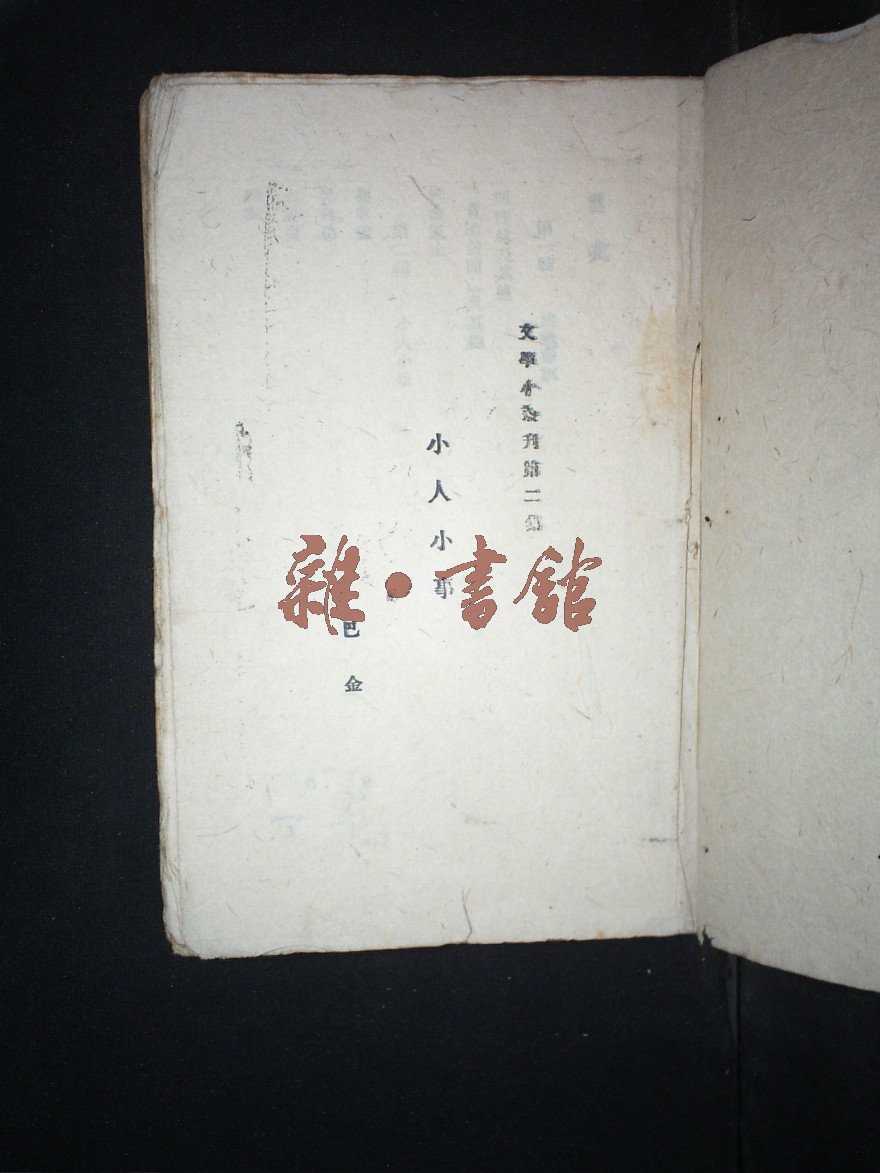 文學小叢刊第二集
小人小事
巴金
雜·書館